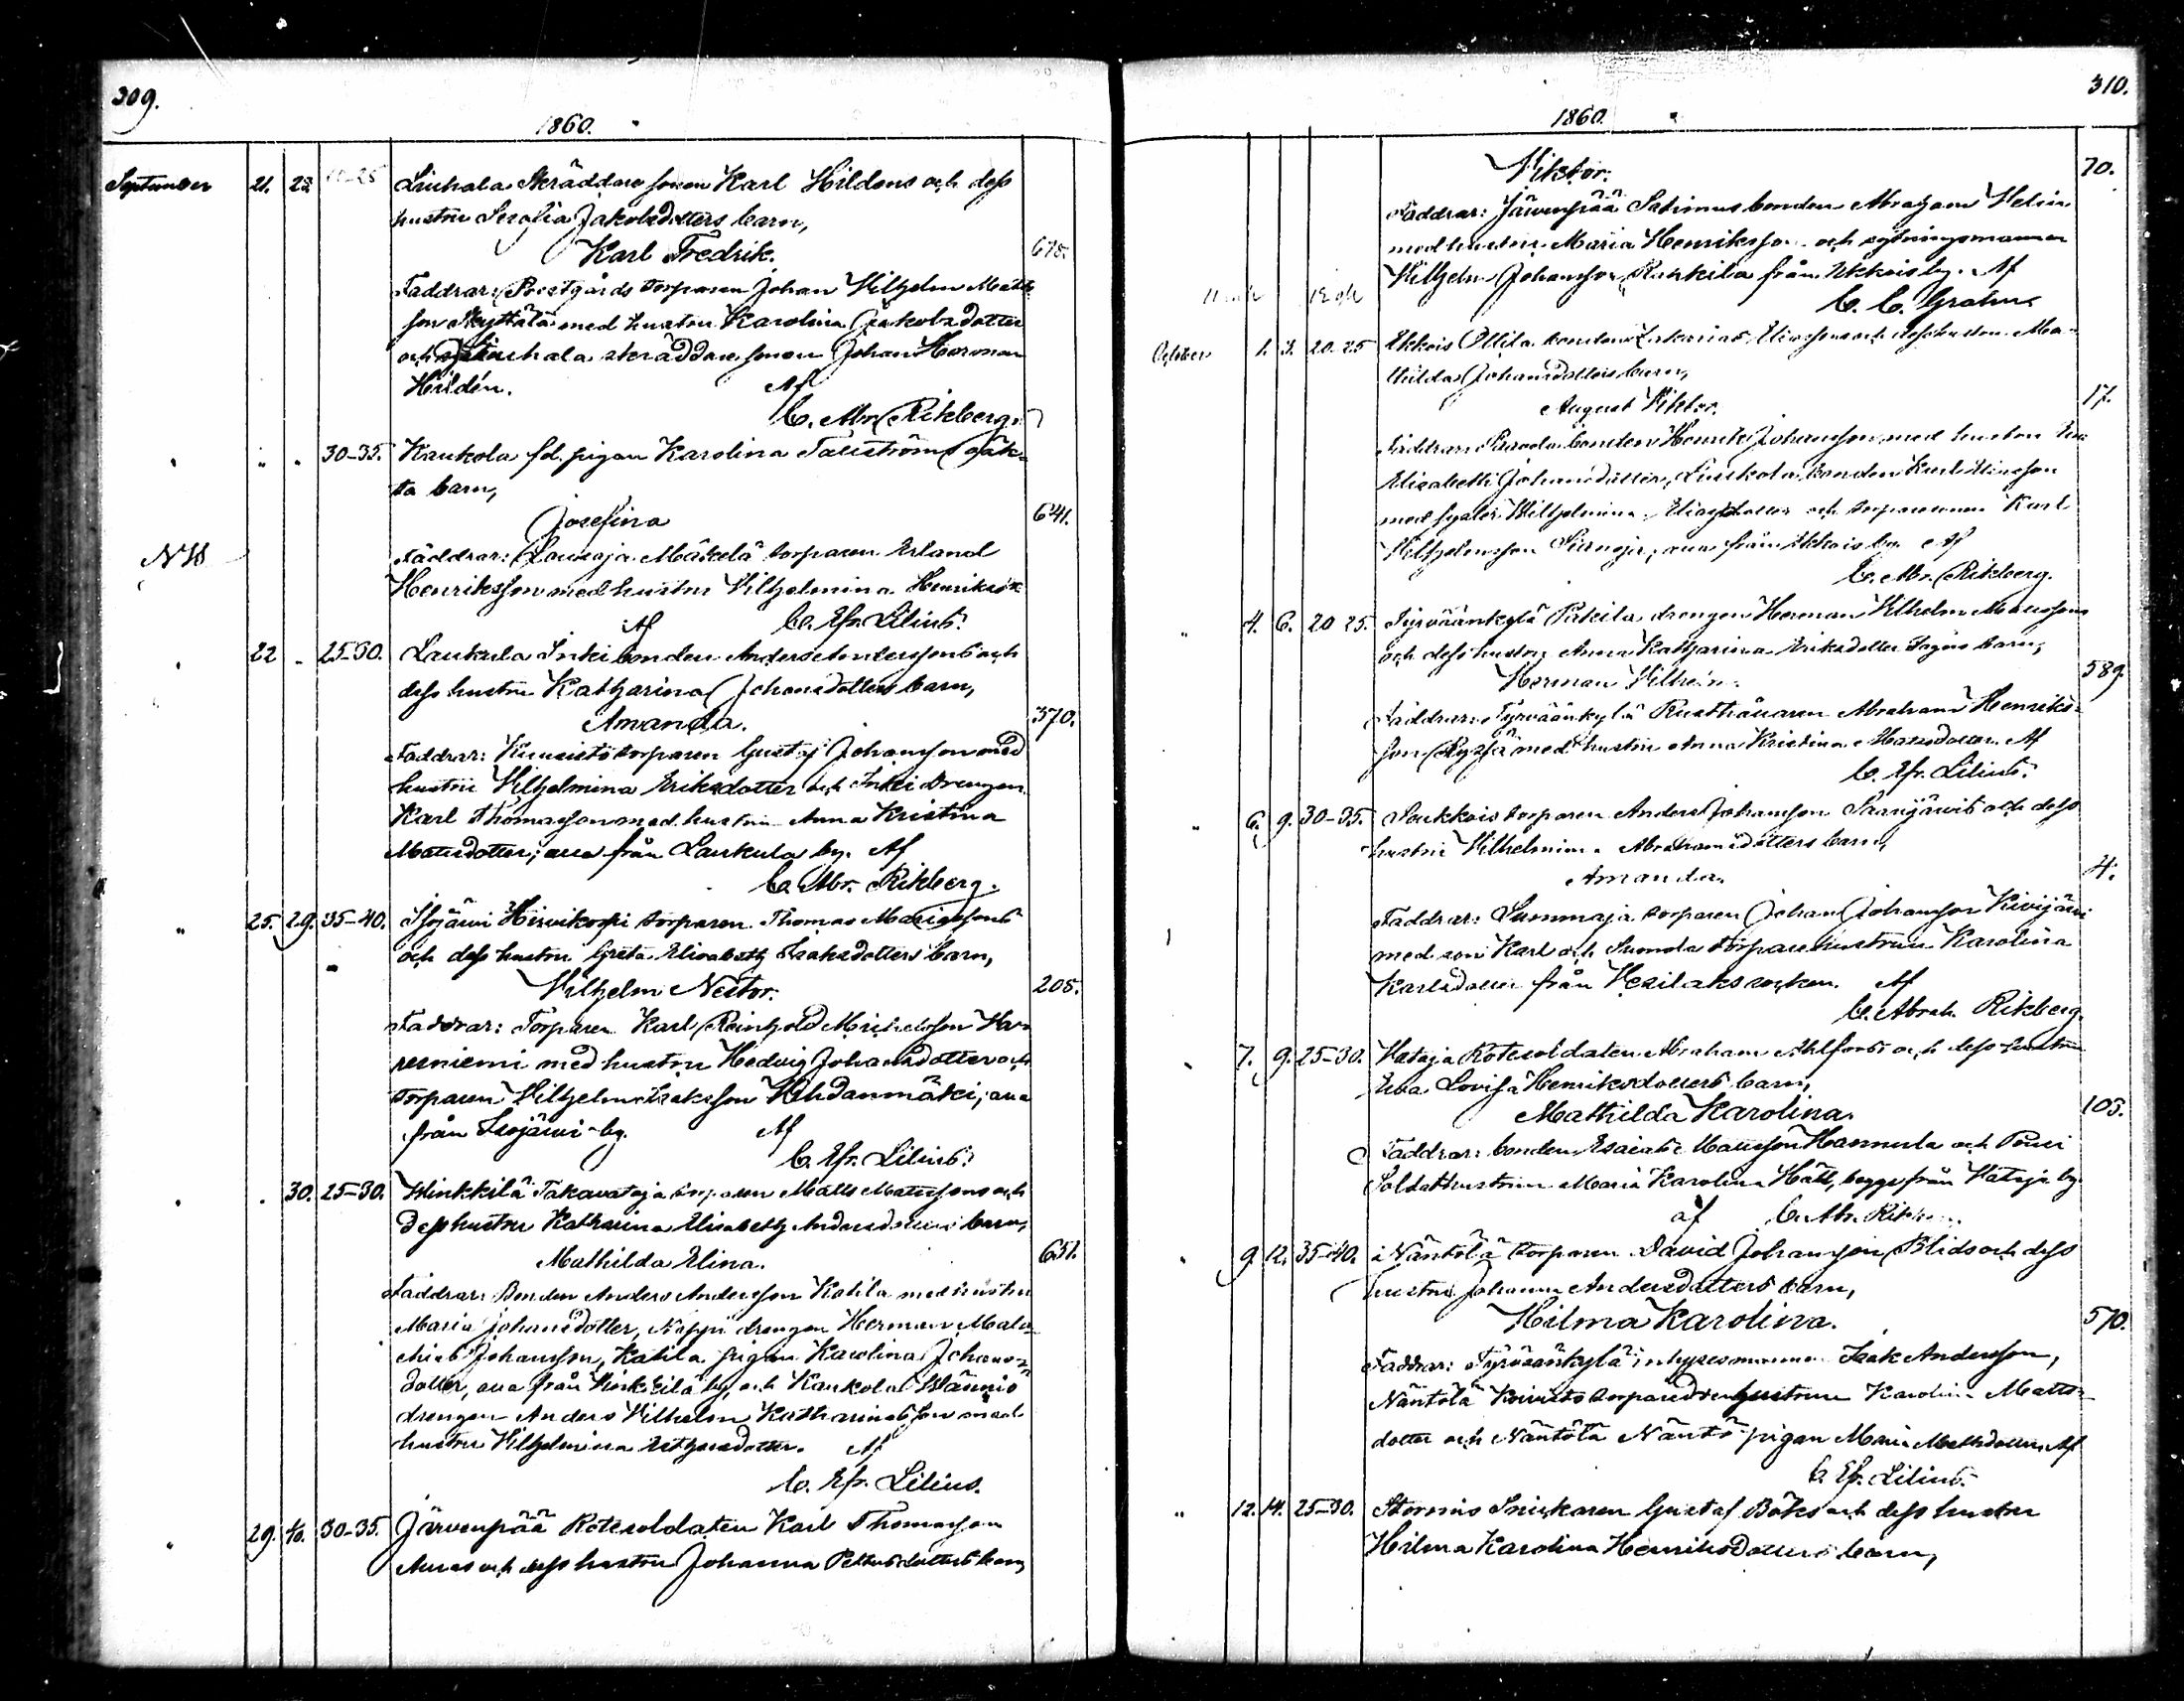 309.
1860.
September 21. 23 Liuhala Skräddare sonen Karl Hildens och dess
hustru Serafia Jakobsdotters barn,
Karl Fredrik. 675.
Faddrar: Prestgårds torparen Johan Vilhelm Matts
son Skyttälä med hustru Karolina Jakobsdotter
och Liuhala skräddare sonen Johan Herman
Hildén. Af
C. Abr. Rikberg.
" " " 30-35. Kaukola fd. pigan Karolina Tallström oäk-
ta barn,
Josefina 641.
NB
Faddrar: Mäkelä torparen Erland
Henriksson med hustru Vilhelmina Henriksdr
Af C. Efr. Lilius.
" 22 " 25-30. Laukula Inki bonden Anders Anderssons och
dess hustru Katharina Johansdotters barn,
Amanda. 370.
Faddrar: Kuusisto torparen Gustaf Johansson med
hustru Vilhelmina Eriksdotter och Inki drengen
Karl Thomasson med hustru Anna Kristina
Matsdotter, alla från Laukula by. Af
C. Abr. Rikberg.
" 25. 29. 35-40. Isojärvi Hirvikorpi torparen Thomas
och dess hustru Greta Elisabeth Isaksdotters barn,
Vilhelm Nestor. 205.
Faddrar: Torparen Karl Reinhold Michelsson Haa-
reeniemi med hustru Hedvig Johansdotter och
torparen Vilhelm Isaksson Uhdanmäki, alla
från Isojärvi by. Af
C. Efr. Lilius.
" " 30. 25-30. Winkkilä Takavataja torparen Matts Matssons och
dess hustru Katharina Elisabeth Andersdotters barn,
Mathilda Elina. 651.
Faddrar: Bonden Anders Andersson Kahila med hustru
Maria Johansdotter, drengen Herman Mala-
chias Johansson, Kahila pigan Karolina Johans-
dotter, alla från Winkkilä by, och Kaukola Männiö
drengen Anders Vilhelm med
hustru Vilhelmina
C. Efr. Lilius.
" 29. 30-35. Järvenpää Rotesoldaten Karl Thomasson
Auras och dess hustru Johanna Pettersdotters barn,
310.
1860.
Viktor. 70.
Faddrar: Järvenpää bonden Abraham
med hustru Maria Henriksson och sytningsmannen
Vilhelm Johansson Raukila från Ekkois by. Af
C. C. Grahns
October 1. 3. 20-25 Ekkois Ollila bonden Zakarias Eliassons och dess hustru Ma-
thilda Johansdotters barn,
August Viktor. 17.
Faddrar: bonden Henrik Johansson med hustru
Elisabeth Johansdotter, bonden Karl Eliasson
med syster Vilhelmina Eliasdotter och torparsonen Karl
Vilhelmsson alla från Ekkois by. Af
C. Abr. Rikberg.
" 4. 6. 20-25. Tyrväänkylä drengen Herman Vilhelm
och dess hustru Anna Katharina Eriksdotter barn,
Herman Vilhelm. 589.
Faddrar: Tyrväänkylä Rusthållaren Abraham Henriks-
son med hustru Anna Kristina Matsdotter. Af
C. Efr. Lilius.
" 6. 9. 30-35. Saukkois torparen Anders Johansson Saarijärvis och dess
hustru Vilhelmina Abrahamsdotters barn,
Amanda. 4.
Faddrar: torparen Johan Johansson Kivijärvi
med son Karl och torparehustrun Karolina
Karlsdotter från Vesilaks socken. Af
C. Abrah. Rikberg.
" 7. 9. 25-30. Hataja Rotesoldaten Abraham Ahlfors och dess hustru
Eva Lovisa Henriksdotters barn,
Mathilda Karolina. 105.
Faddrar: bonden Esaias Matsson Hannula och
Soldathustrun Maria Karolina Hätt, begge från Hataja by.
af C. Abr. Rikberg.
" 9. 12. 35-40. Näntölä torparen David Johansson Blids och dess
hustru Johanna Andersdotters barn,
Hilma Karolina. 570.
Faddrar: Tyrväänkylä inhysesmannen Isak Andersson,
Näntölä Koivisto hustrun Karolina Matts-
dotter och Näntölä Näntö pigan Maria Mattsdotter. Af
C. Ef. Lilius.
" 12. 14. 25-30. Stormis Snickaren Gustaf Böks och dess hustru
Hilma Karolina Henriksdotters barn,